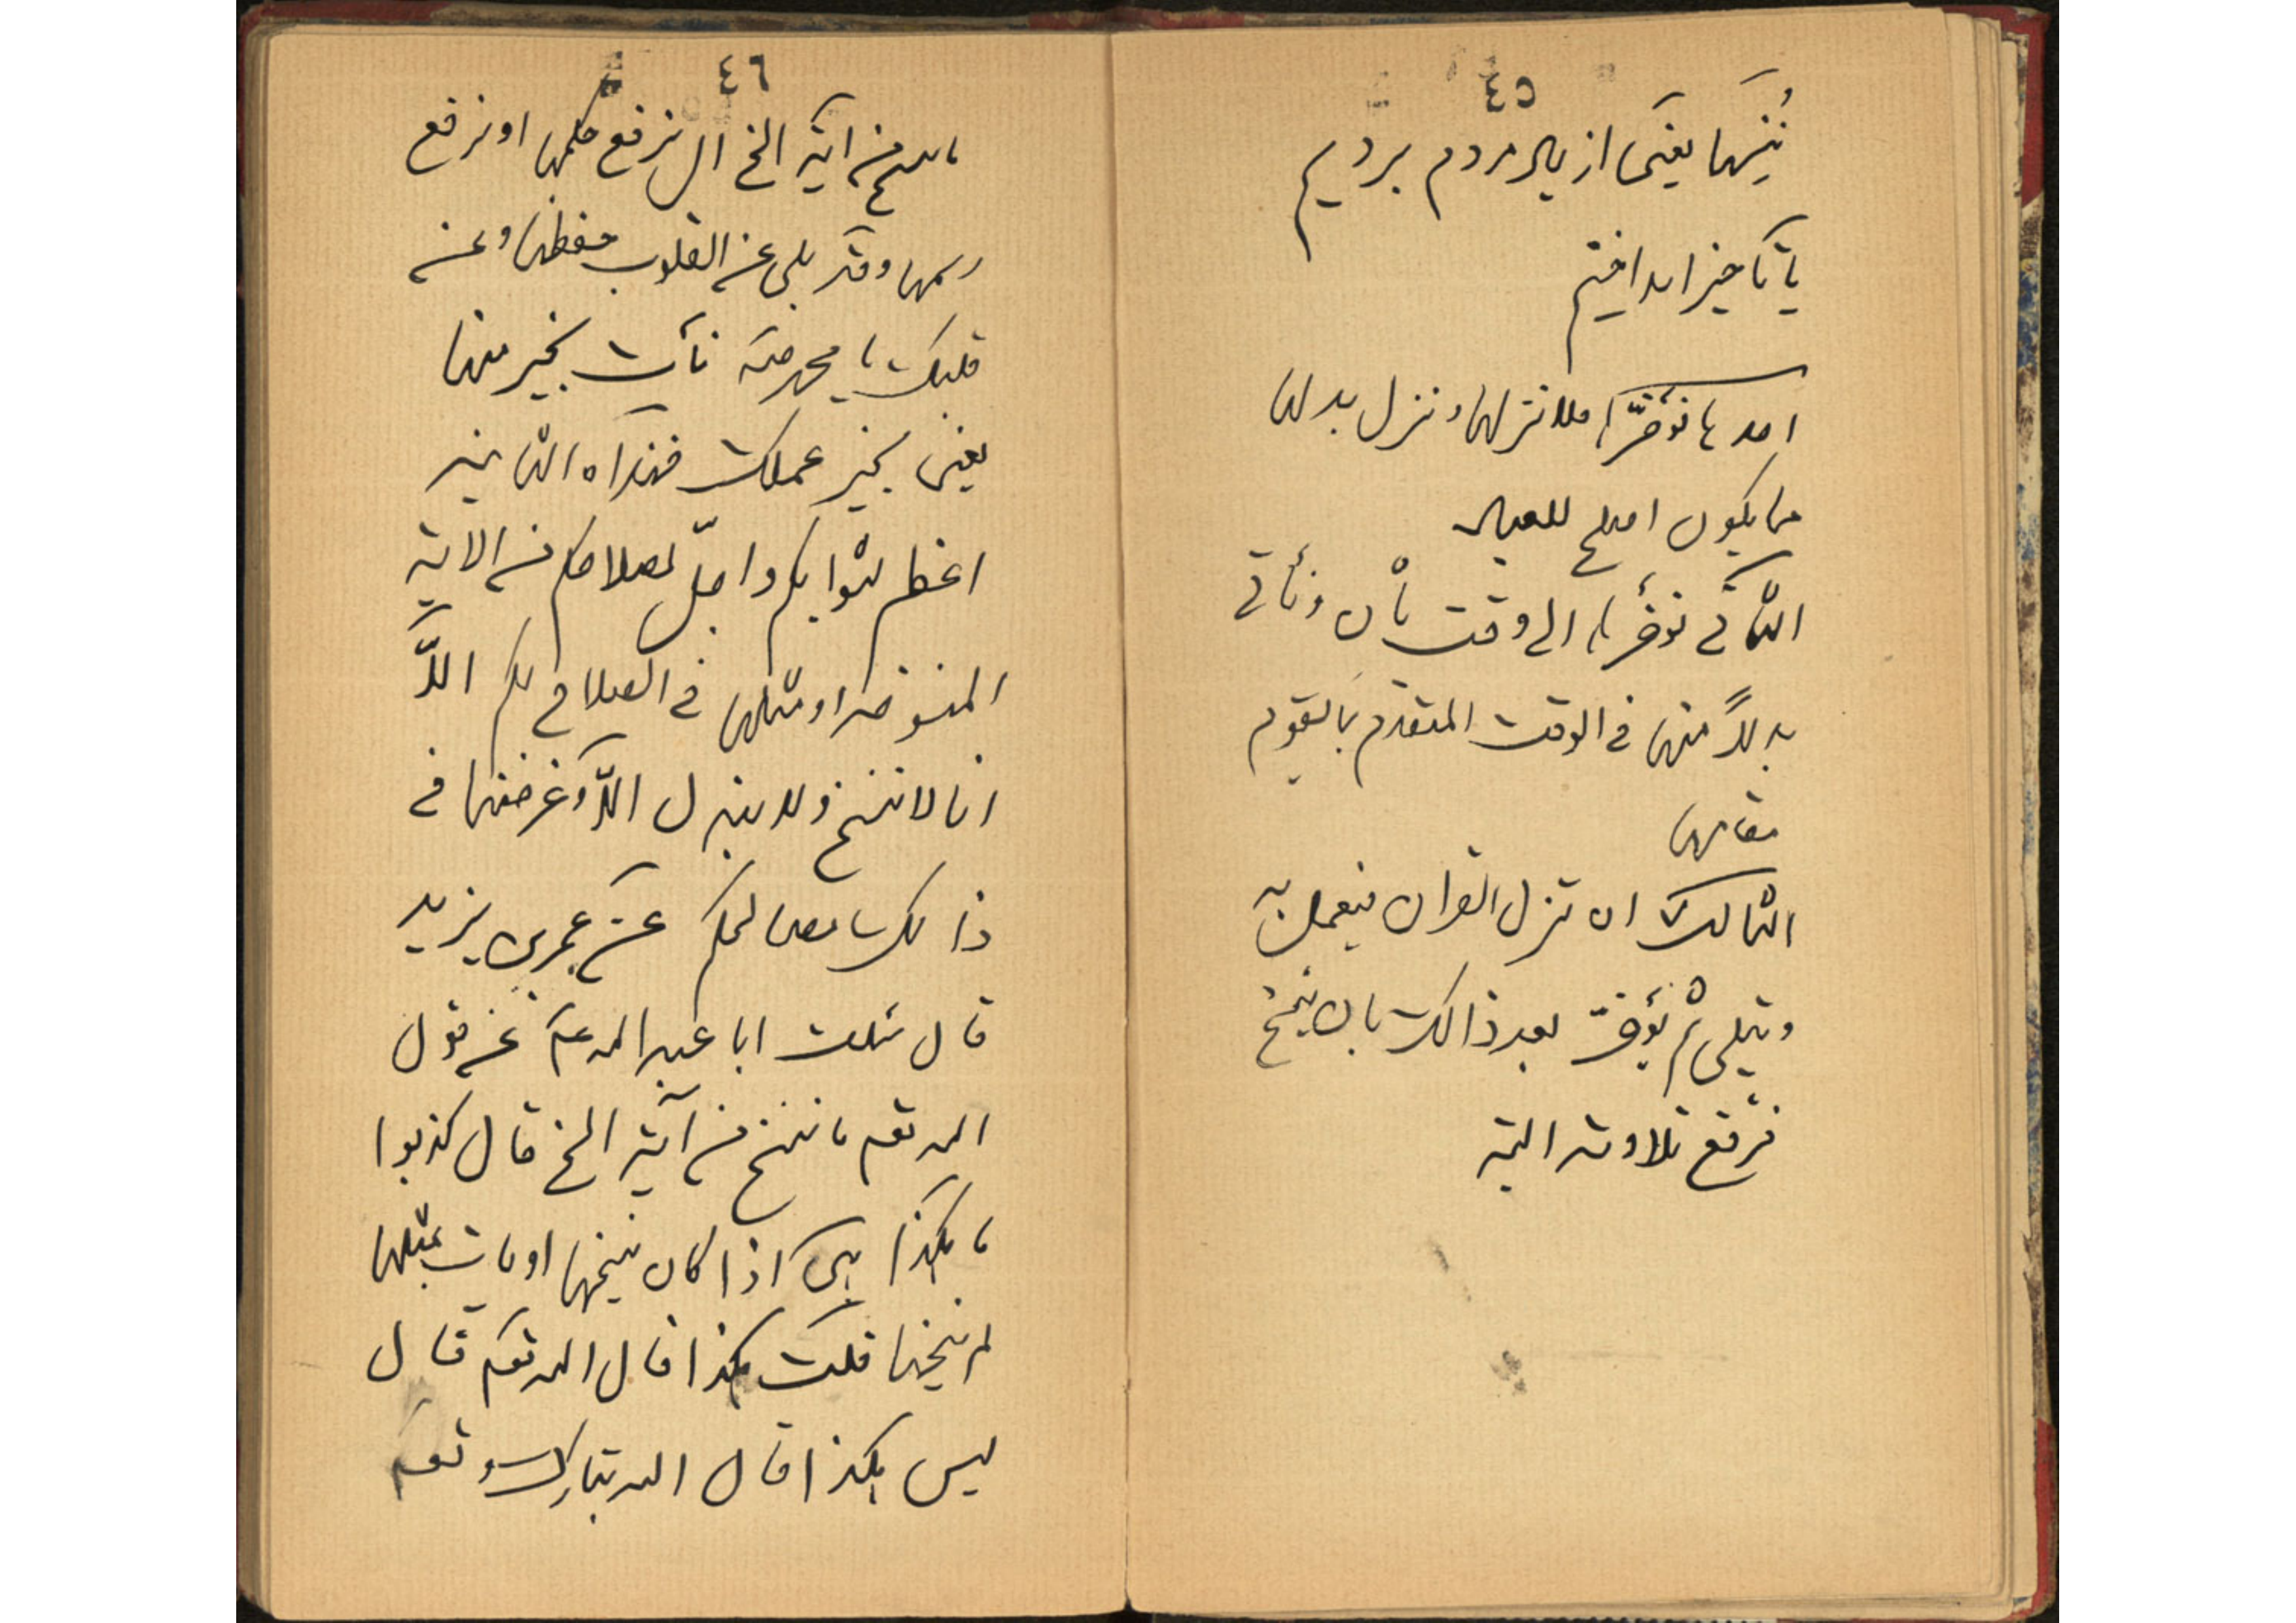 ٤٥
نُنْسِها یعنی از یاد مردم بردیم
یا تاخیر انداختیم
احدها نؤخّرها فلا ننزلها و ننزل بدلها
مما یکون اصلح للعباد
الثانی نؤخرها الی وقت ثانٍ و نأتی
بدلاً منها فی الوقت المتقدم بما یقوم
مقامها
الثالث ان تنزل القرآن فیعمل به
و یتلی ثم یؤخّر بعد ذالک بان ینسخ
فترفع تلاوته البته
٤٦
ما ننسخ من ایة الخ ال نرفع حکمها او نرفع
رسمها و قد بلی عن القلوب حفظها و عن
قلبک یا محمد نأت بخیر منها
یعنی بخیر عملک فهذاه الثانیه
اعظم لثوابکم و اجلّ لصلاحکم من الایة
المنسوخه او مثلها فی الصلاح لکم الّا
انا لا ننسخ و لا نبدل الّا و غرضنا فی
ذالک مصالحکم عن عمر بن یزید
قال سئلت ابا عبد الله ع عن قول
الله تعم ما ننسخ من آیة الخ قال کذبوا
ما هکذا هی اذا کان ینسخها او یات بمثلها
لم ینسخها قلت هکذا قال الله تعم قال
لیس هکذا قال الله تبارک و تعم